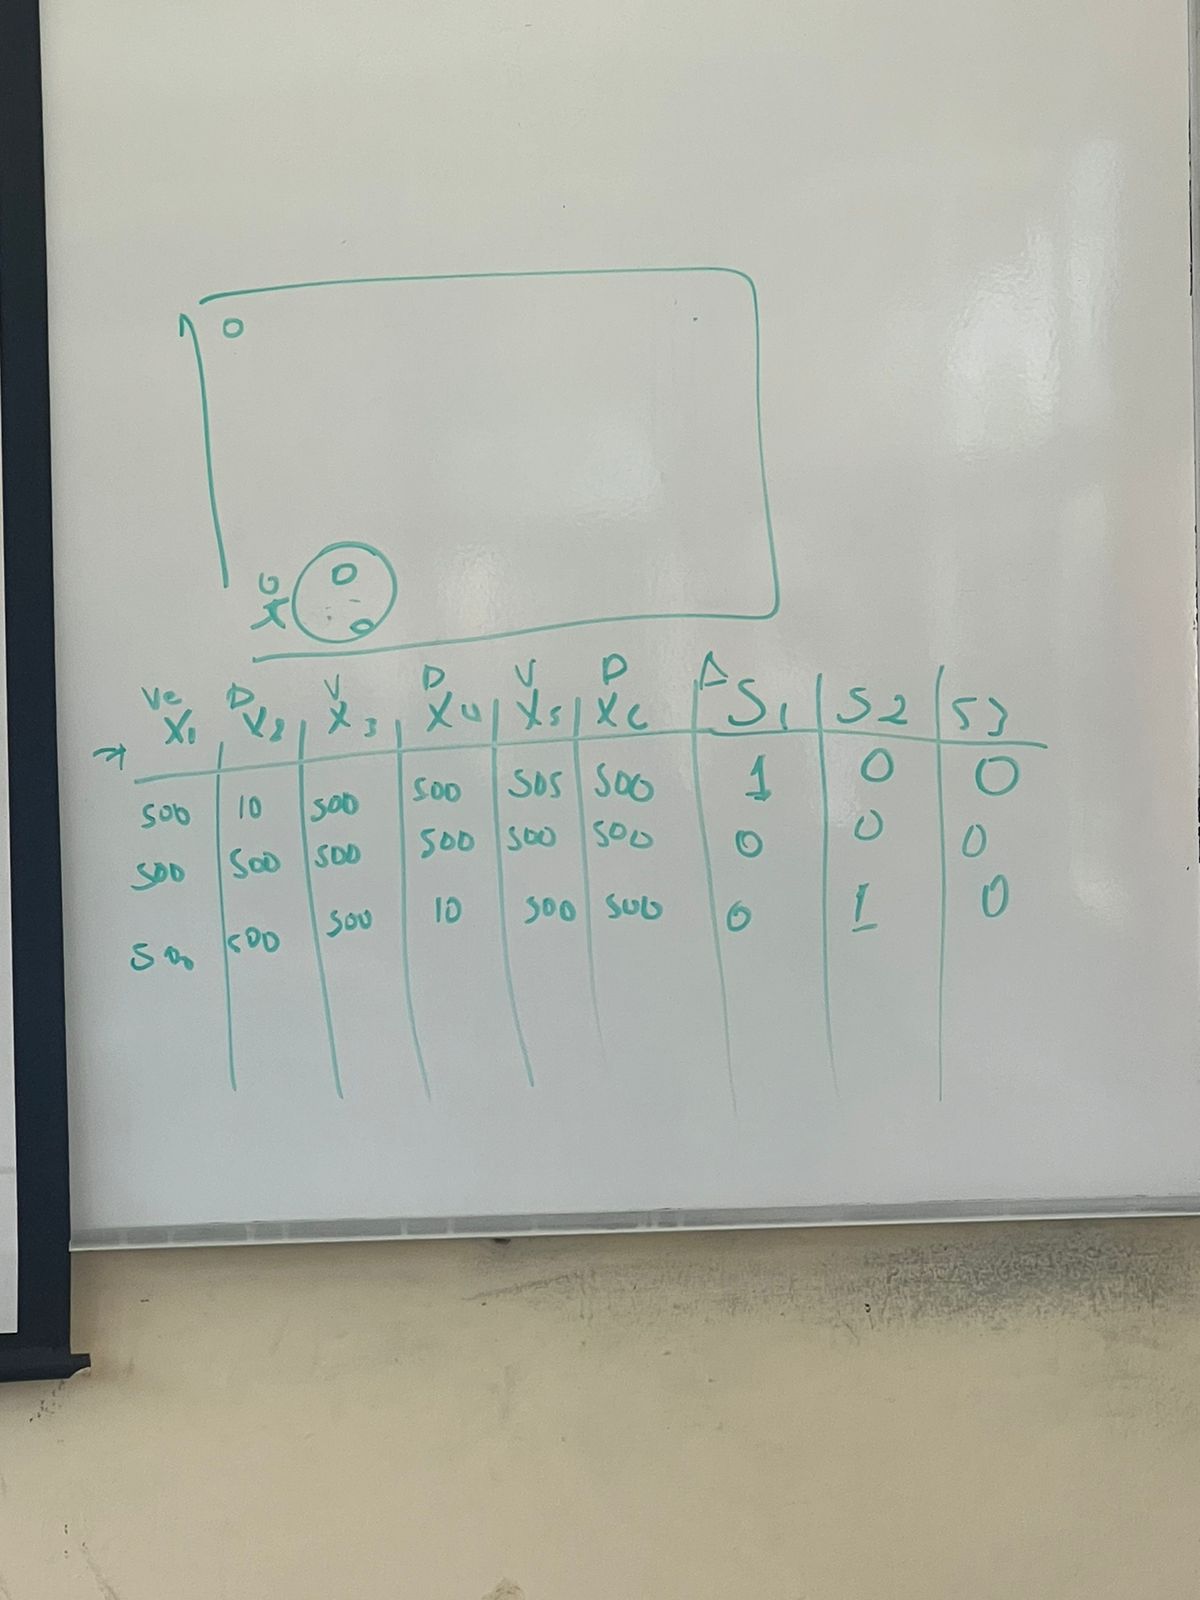 Ve D V D V D A
X1 X2 X3 X4 X5 X6 S1 S2 S3
500 10 500 500 505 500 1 0 0
500 500 500 500 500 500 0 0 0
500 500 500 10 500 500 0 1 0